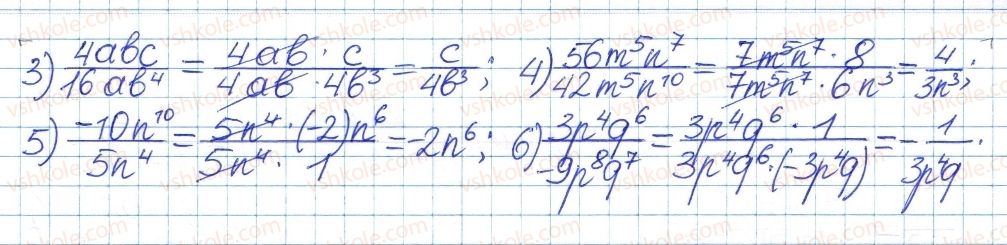 3) 4abc/16ab⁴ = 4ab · c/4ab · 4b³ = c/4b³; 4) 56m⁵n⁷/42m⁵n¹⁰ = 7m⁵n⁷ · 8/7m⁵n⁷ · 6n³ = 4/3n³;
5) -10n¹⁰/5n⁴ = 5n⁴ · (-2)n⁶/5n⁴ · 1 = -2n⁶; 6) 3p⁴q⁶/-9p⁸q⁷ = 3p⁴q⁶ · 1/3p⁴q⁶ · (-3p⁴q) = -1/3p⁴q.